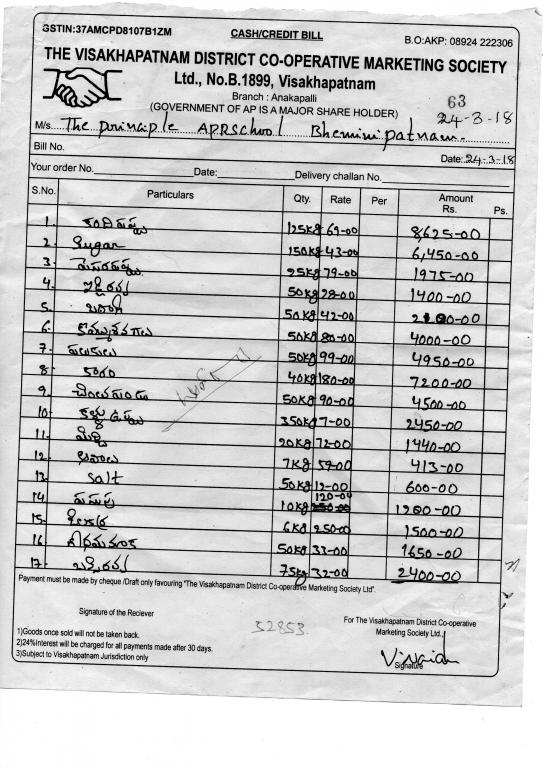 GSTIN:37AMCPD8107B1ZM CASH/CREDIT BILL B.O:AKP: 08924 222306
THE VISAKHAPATNAM DISTRICT CO-OPERATIVE MARKETING SOCIETY
Ltd., No.B.1899, Visakhapatnam
Branch : Anakapalli
(GOVERNMENT OF AP IS A MAJOR SHARE HOLDER)
63
24-3-18
M/s The principle APRSchool Bheminipatnam
Bill No. Date: 24-3-18
Your order No. Date: Delivery challan No.
S.No. Particulars Qty. Rate Per Amount Rs. Ps.
1. కందిపప్పు 125kg 69-00 8,625-00
2. Sugar 150kg 43-00 6,450-00
3. మినపప్పు 25kg 79-00 1975-00
4. ఇడ్లీరవ్వ 50kg 28-00 1400-00
5. 50kg 42-00 2100-00
6. కొమ్ముశనగలు 50kg 80-00 4000-00
7. పలుకులు 50kg 99-00 4950-00
8. కారం 40kg 180-00 7200-00
9. చింతపండు 50kg 90-00 4500-00
10. కళ్ళుఉప్పు 350kg 7-00 2450-00
11. 20kg 72-00 1440-00
12. ఆవాలు 7kg 59-00 413-00
13. Salt 50kg 12-00 600-00
14. పసుపు 10kg 120-00 1200-00
15. జీలకర్ర 6kg 250-00 1500-00
16. గోధుమనూక 50kg 33-00 1650-00
17. బొంబాయిరవ్వ 75kg 32-00 2400-00
Payment must be made by cheque /Draft only favouring "The Visakhapatnam District Co-operative Marketing Society Ltd".
Signature of the Reciever
52853
For The Visakhapatnam District Co-operative
Marketing Society Ltd.,
1)Goods once sold will not be taken back.
2)24%Interest will be charged for all payments made after 30 days.
3)Subject to Visakhapatnam Jurisdiction only
Signature